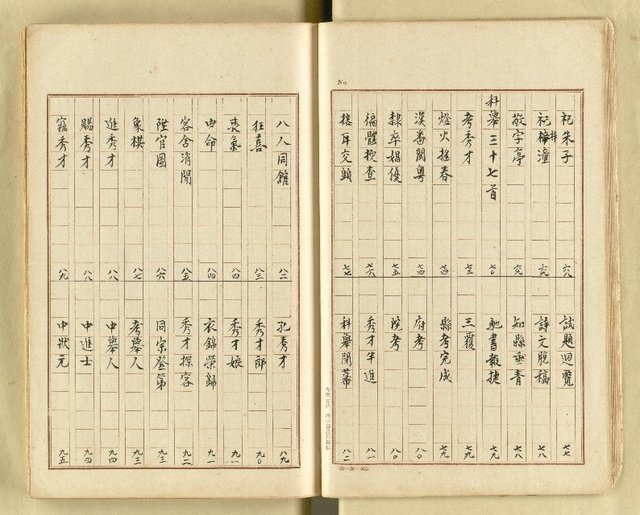 No.
祀朱子 六八
祀梓潼 六九
敬字亭 六九
科舉三十七首 七〇
考秀才 七三
燈火搖春 七四
漢番閩粵 七四
隸卒娼優 七五
偏體搜查 七六
接耳交頭 七七
試題迴覽 七七
詩文脫稿 七八
知縣垂青 七八
馳書報捷 七九
三覆 七九
縣考完成 七九
府考 八〇
院考 八〇
秀才半進 八一
科舉閉幕 八二
20-20-400
八人同館 八二
狂喜 八三
喪氣 八四
由命 八四
客舍消閒 八五
陞官圖 八六
象棋 八七
進秀才 八八
賜秀才 八八
竊秀才 八九
孔秀才 八九
秀才郎 九〇
秀才娘 九一
衣錦榮歸 九一
秀才探客 九二
同宗登第 九三
考舉人 九三
中舉人 九四
中進士 九四
中狀元 九五